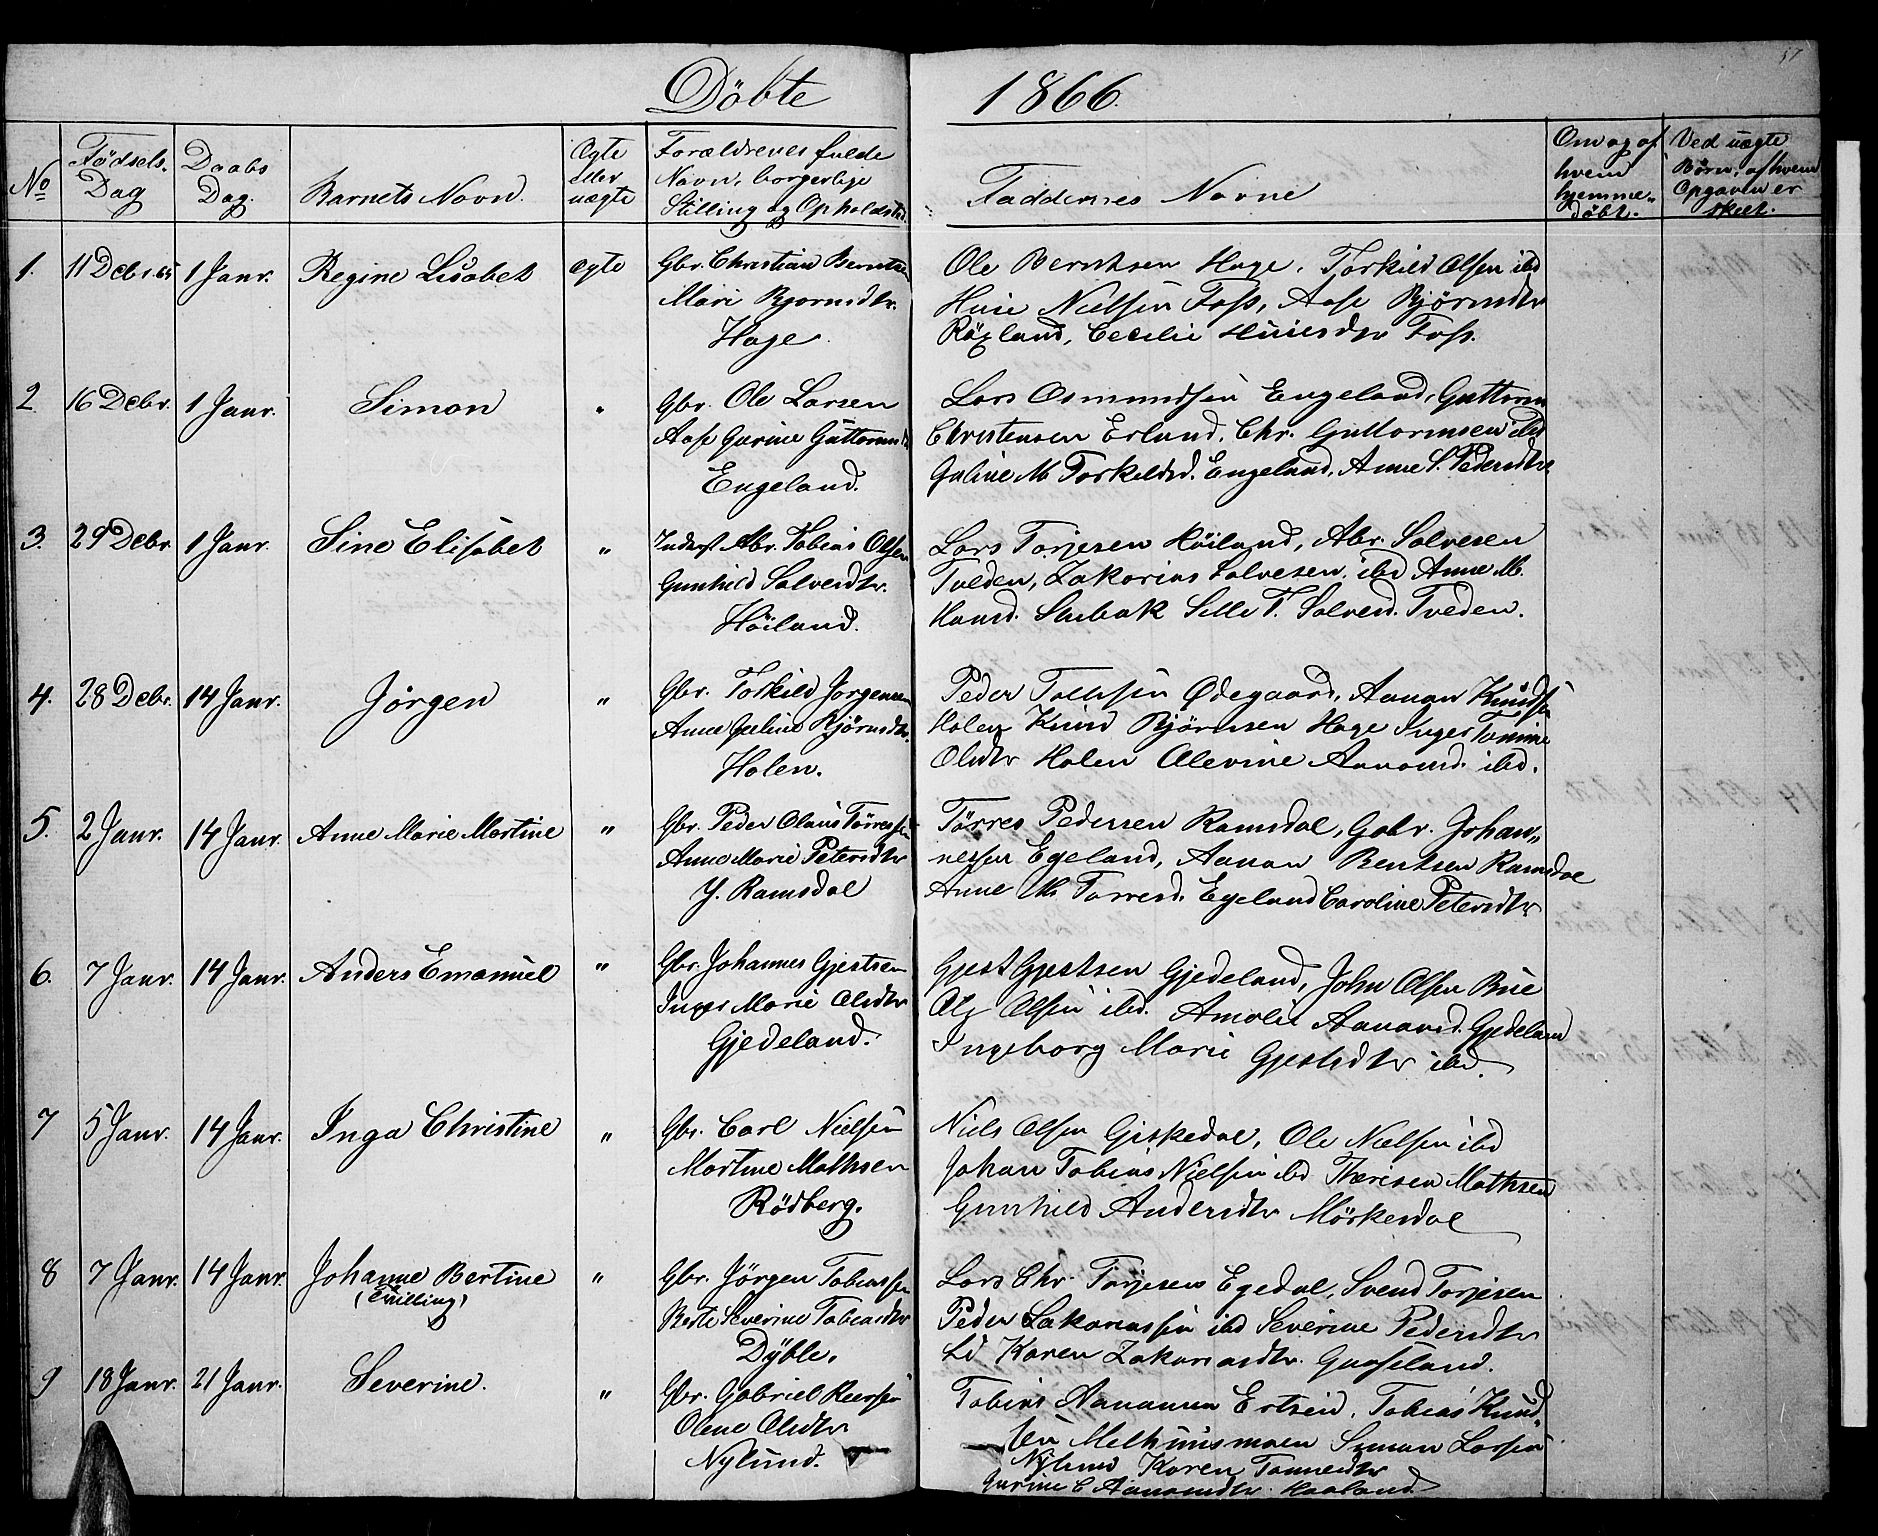 57
Döbte 1866.
No
Födsels-
Dag
Daabs
Dag.
Barnets Navn.
Ægte
eller
uægte
Forældrenes fulde
Navn, borgerlige
Stilling og Opholdsted.
Faddernes Navne
Om og af
hvem
hjemme-
döbt.
Ved uægte
Børn, af hvem
Opgaven er
skeet.
1. 11 Debr. 65 1 Janr. Regine Lisabet ægte
Gbr. Christian Berntsen
Mari Bjornsdtr.
Hage.
Ole Berntsen Hage, Torkild Olsen ibd
Huie Nielsen Foss, Aase Bjørnsdtr
Röxland, Cecilie Huiesdtr Foss.
2 16 Debr. 1 Janr. Simon "
Gbr. Ole Larsen
Aase Gurine Guttorms
Engeland.
Lars Osmundsen Engeland, Guttorm
Christensen Erland, Chr. Guttormsen ibd
Guline M Torkildsd. Engeland, Anne S. Pedersdtr
3. 29 Debr. 1 Janr. Sine Elisabet "
Inderst Abr. Tobias Olsen
Gunhild Salvesdtr.
Höiland.
Lars Torjesen Höiland, Abr. Salvesen
Tveden, Zakarias Salvesen ibd Anne M.
Hansd. Stubak Sille T. Salvesd. Tveden.
4. 28 Debr. 14 Janr. Jörgen "
Gbr. Torkild Jorgensen
Anne Guline Bjørnsdtr.
Holen.
Peder Tollefsen Ødegaard, Aanan Knudsen
Holen Knud Bjørnsen Hage Inger Tomine
Olsdtr Holen Olevine Aanonsd. ibd.
5. 2 Janr. 14 Janr. Anne Marie Martine "
Gbr. Peder Olaus Törressen
Anne Marie Petersdtr
Y. Ramsdal
Törres Pedersen Ramsdal, Gabr. Johan-
nessen Egeland, Aanan Bentsen Ramsdal
Anne M. Torresd. Egeland Caroline Petersdtr
6. 7 Janr. 14 Janr. Anders Emanuel "
Gbr. Johannes Gjestsen
Inger Marie Olsdtr
Gjedeland.
Gjest Gjestsen Gjedeland, John Olsen Bue
Ole Olsen ibd. Amalie Aanansd. Gjedeland
Ingeborg Marie Gjestsdtr ibd.
7 5 Janr. 14 Janr. Inga Christine "
Gbr. Carl Nielsen
Martine Mathsen
Rödberg.
Niels Olsen Giskedal, Ole Nielsen ibd
Johan Tobias Nielsen ibd Theresen Mathsen
Gunhild Andersdtr Mörkesdal
8 7 Janr. 14 Janr. Johanne Bertine "
(Tvilling)
Gbr. Jörgen Tobiassen
Berte Severine Tobiasdtr
Dyble.
Lars Chr. Torjesen Egedal, Svend Torjesen
Peder Zakariassen ibd Severine Pedersdtr
ibd Karen Zakariasdtr. Gaaseland.
9 18 Janr. 21 Janr. Severine. "
Gbr. Gabriel Reersen
Olene Olsdtr
Nylund.
Tobias Aanansen Ertseid, Tobias Knud-
sen Melhuusmoen Simon Larsen
Nylund Karen Tonnesdtr
Gurine C Aanonsdtr. Haaland